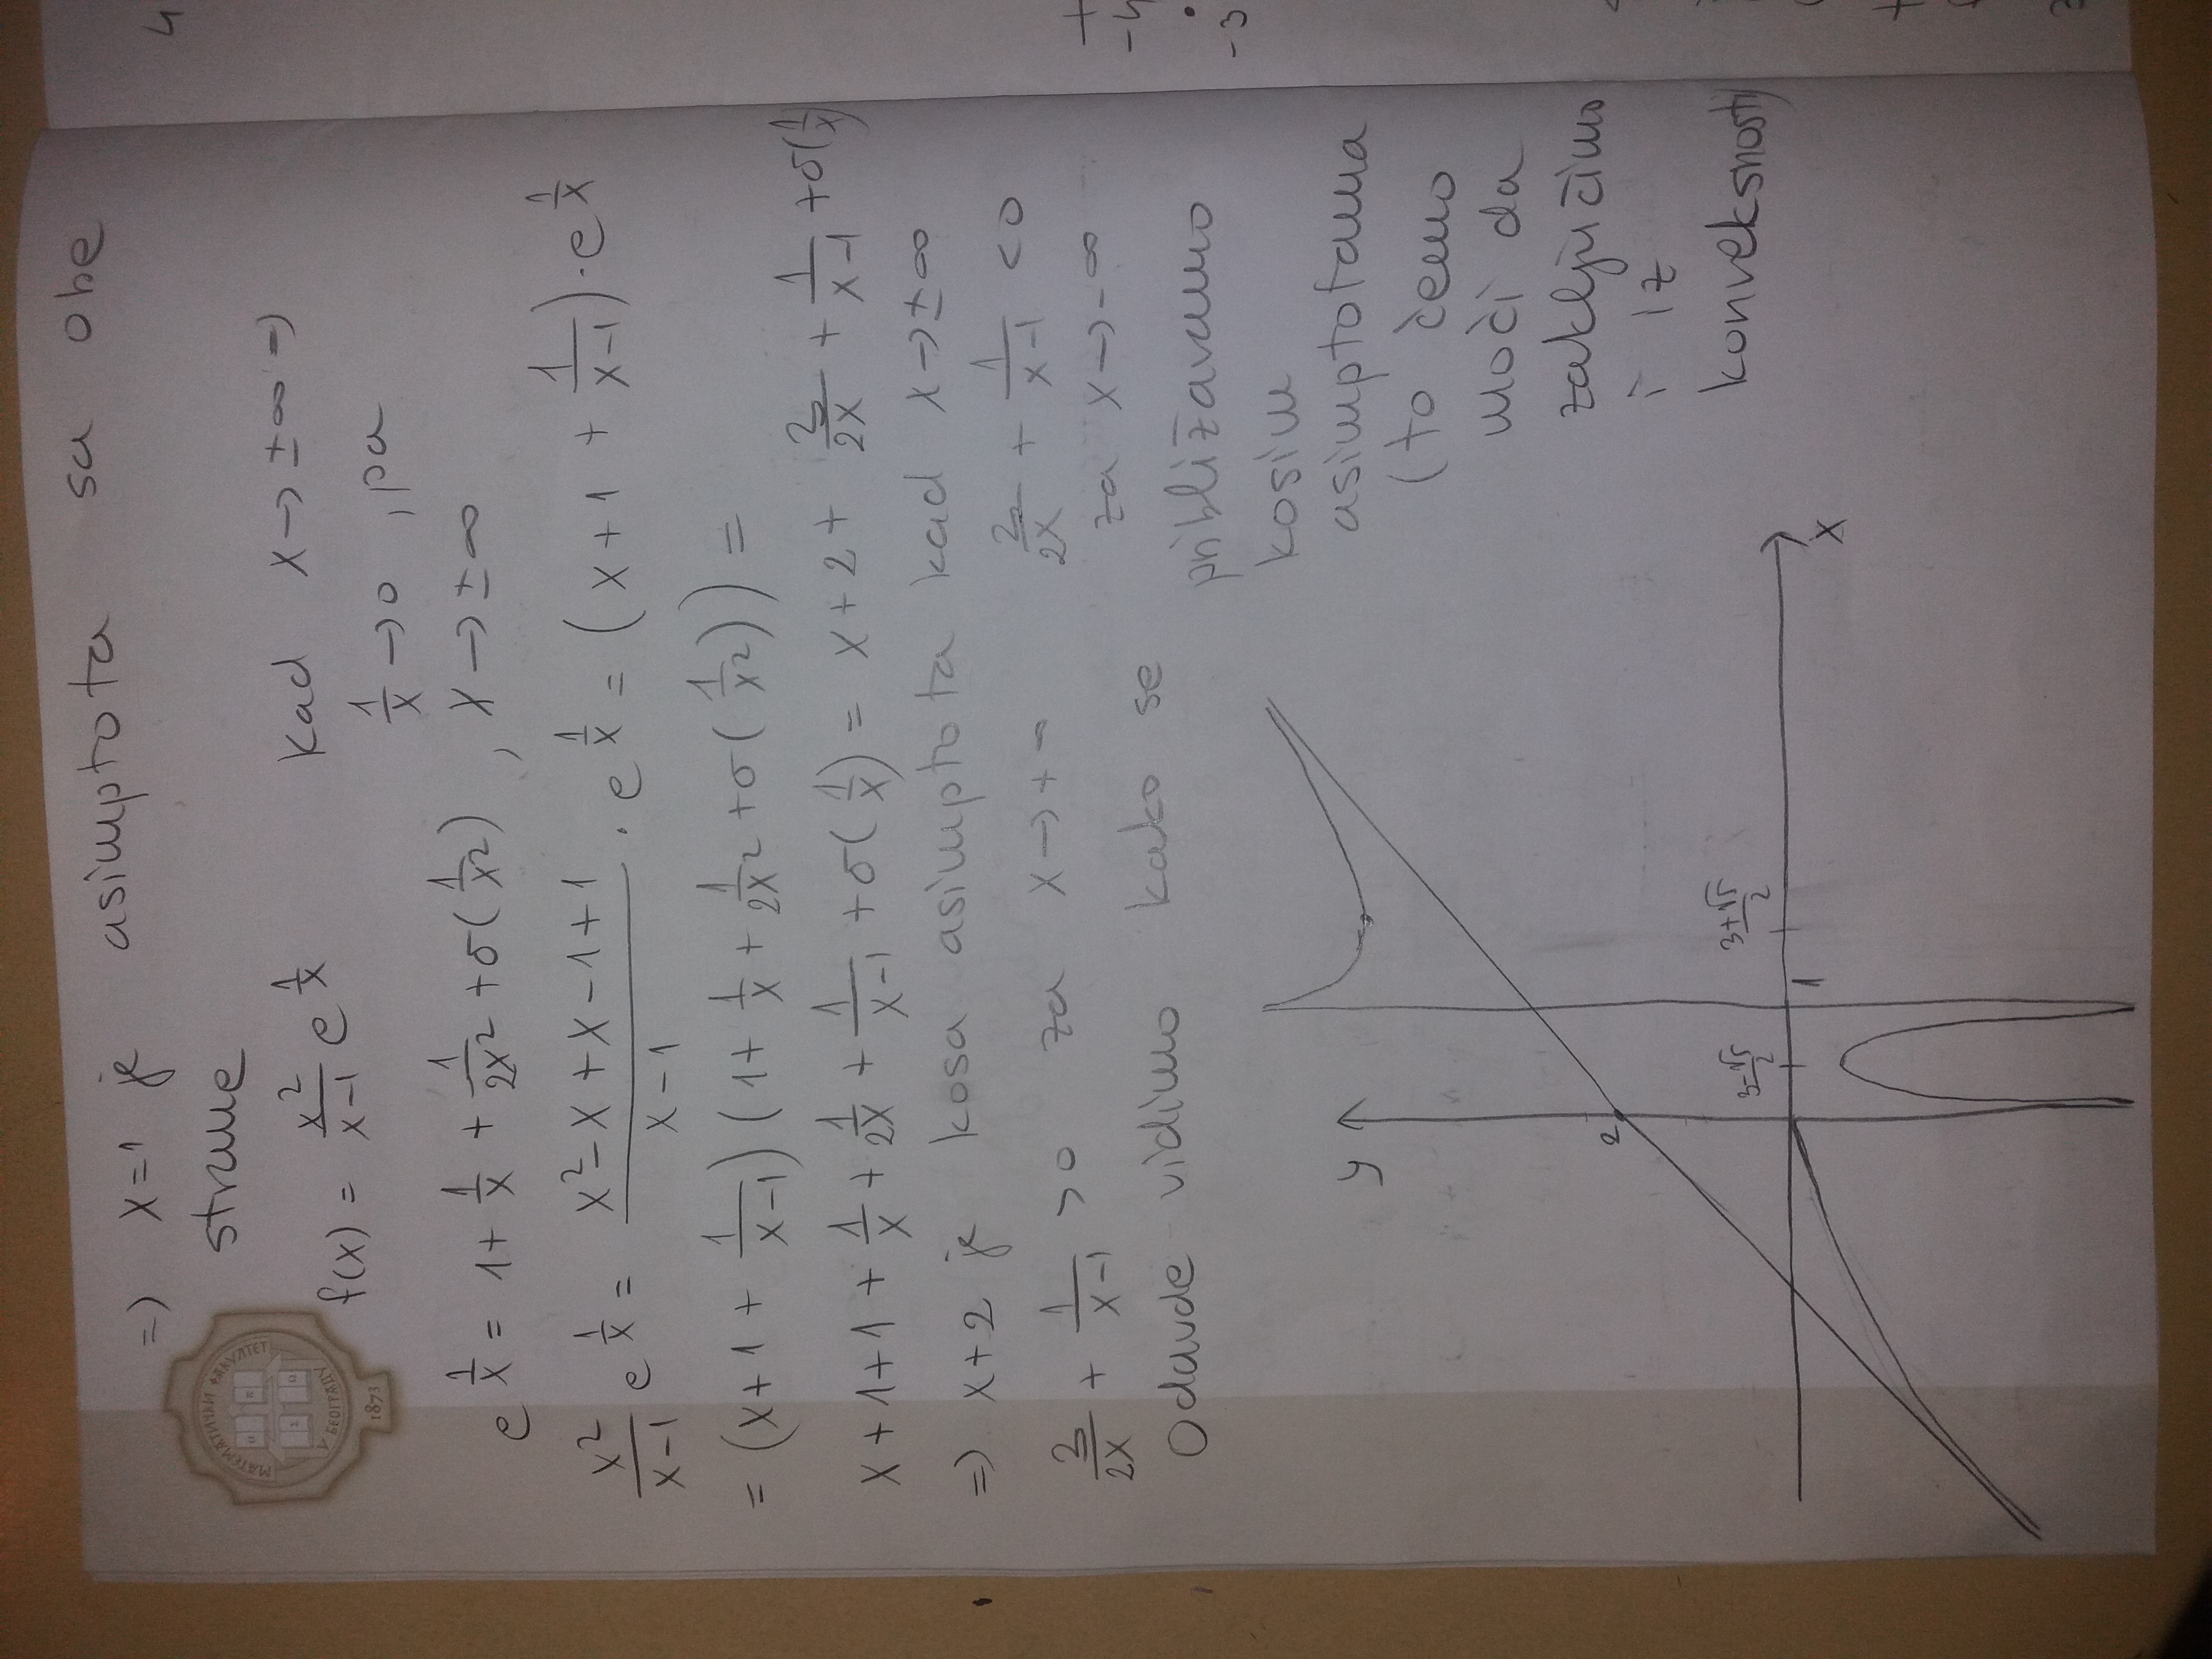 =) x=1 je asimptota sa obe
strane
МАТЕМАТИЧКИ ФАКУЛТЕТ
У БЕОГРАДУ
1873
f(x) = \frac{x^2}{x-1} e^{\frac{1}{x}} kad x→±∞ =)
\frac{1}{x}→0, pa
e^{\frac{1}{x}} = 1+\frac{1}{x}+\frac{1}{2x^2}+σ(\frac{1}{x^2}), x→±∞
\frac{x^2}{x-1} e^{\frac{1}{x}} = \frac{x^2-x+x-1+1}{x-1} · e^{\frac{1}{x}} = (x+1+\frac{1}{x-1}) · e^{\frac{1}{x}}
= (x+1+\frac{1}{x-1})(1+\frac{1}{x}+\frac{1}{2x^2}+σ(\frac{1}{x^2})) =
x+1+1+\frac{1}{x}+\frac{1}{2x}+\frac{1}{x-1}+σ(\frac{1}{x}) = x+2+\frac{3}{2x}+\frac{1}{x-1}+σ(\frac{1}{x})
=) x+2 je kosa asimptota kad x→±∞
\frac{3}{2x}+\frac{1}{x-1}>0 za x→+∞ \frac{3}{2x}+\frac{1}{x-1}<0
za x→-∞
Odavde vidimo kako se
približavamo
kosim
asimptotama
(to ćemo
moći da
zaključimo
i iz
konveksnosti)
y
2
\frac{3-√5}{2} \frac{3+√5}{2}
1
x
4
+
-4
-3